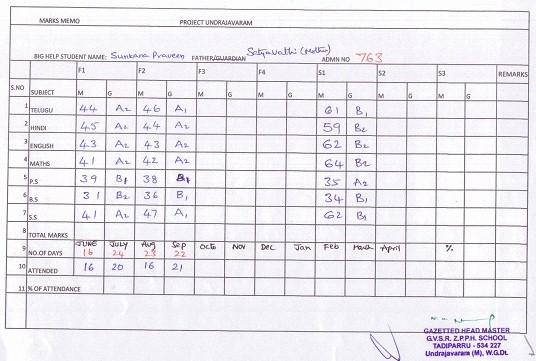 MARKS MEMO PROJECT UNDRAJAVARAM
BIG HELP STUDENT NAME: Sunkara Praveen FATHER/GUARDIAN Satyavathi (Mother) ADMN NO 763
F1 F2 F3 F4 S1 S2 S3 REMARKS
S.NO SUBJECT M G M G M G M G M G M G M G
1 TELUGU 44 A2 46 A1 61 B1
2 HINDI 45 A2 44 A2 59 B2
3 ENGLISH 43 A2 43 A2 62 B2
4 MATHS 41 A2 42 A2 64 B2
5 P.S 39 B1 38 B1 35 A2
6 B.S 31 B2 36 B1 34 B1
7 S.S 41 A2 47 A1 62 B1
8 TOTAL MARKS
JUNE JULY Aug Sep Octo Nov Dec Jan Feb March April %
9 NO.OF DAYS 16 24 23 22
10 ATTENDED 16 20 16 21
11 % OF ATTENDANCE
GAZETTED HEAD MASTER
G.V.S.R. Z.P.P.H. SCHOOL
TADIPARRU - 534 227
Undrajavaram (M), W.G.Dt.